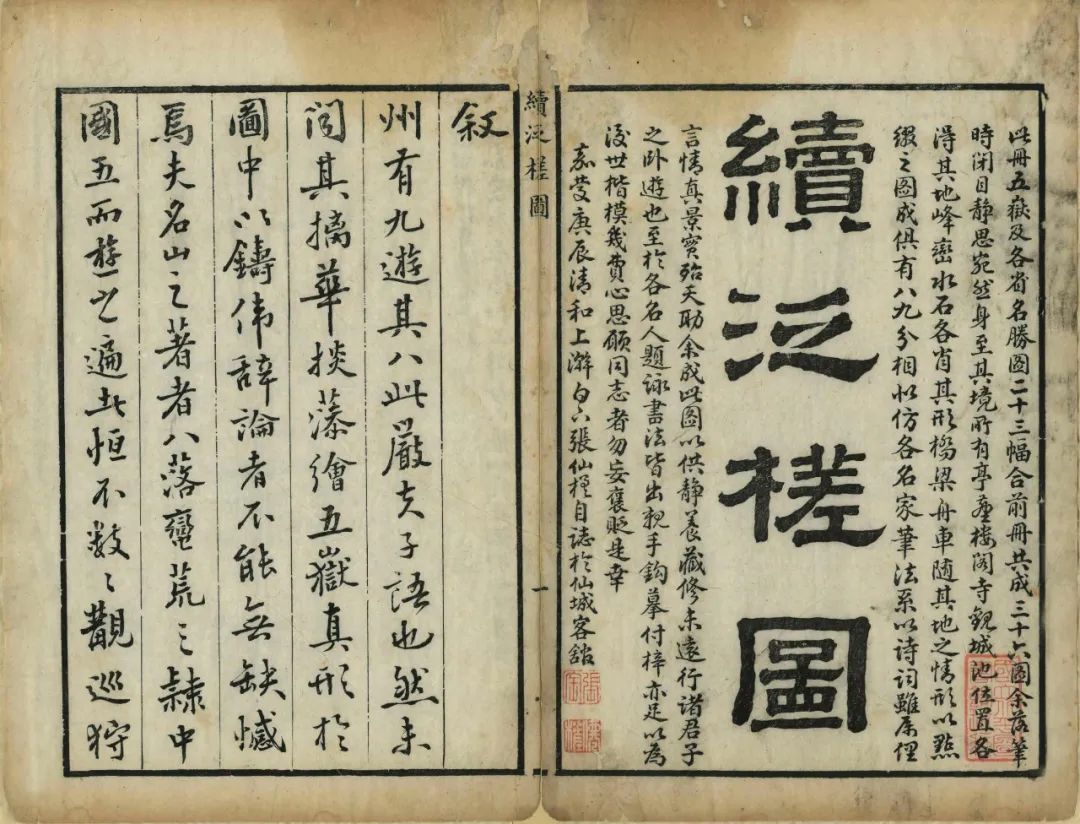 此冊五嶽及各省名勝圖二十三幅合前冊共成三十六圖余落筆
時閉目靜思宛然身至其境所有亭臺樓閣寺觀城池位置各
得其地峰巒水石各肖其形橋梁舟車隨其地之情形以點
綴之圖成俱有八九分相似仿各名家筆法系以诗詞雖屬俚
續泛槎圖
言情真景實殆天助余成此圖以供静養藏修未遠行诸君子
之卧遊也至於各名人題詠書法皆出親手鈎摹付梓亦足以為
後世楷模幾費心思願同志者勿妄褒貶是幸
嘉慶庚辰清和上澣白下張仙槎自誌於仙城客館
續泛槎圖
一
叙
州有九遊其八此嚴夫子語也然未
聞其摛華掞藻繪五嶽真形於
圖中以鑄偉辭論者不能無缺憾
焉夫名山之著者八落蠻荒三隸中
國五而遊之遍此恒不数〻觀巡狩